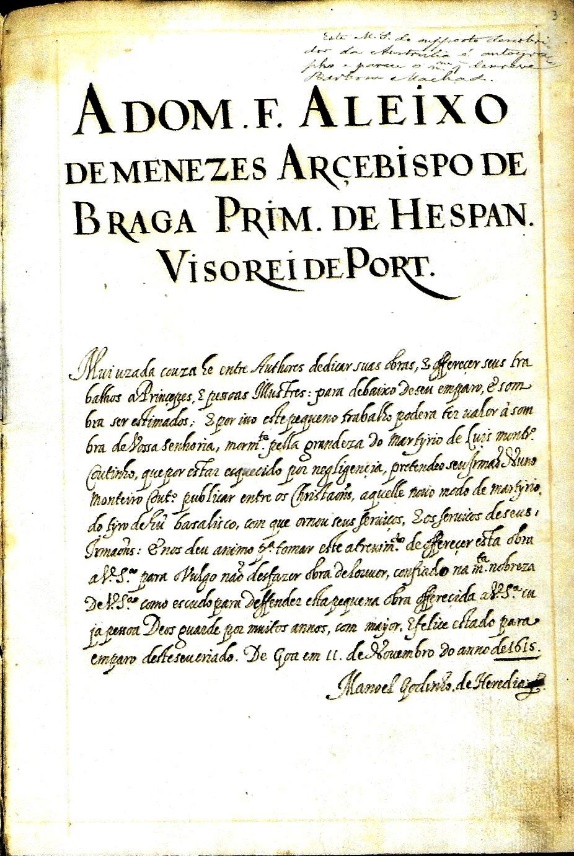 3
Este M.S. do supposto descobri-
dor da Australia é autogra-
pho e parece o
Barbosa Machado.
A DOM. F. ALEIXO
DE MENEZES ARÇEBISPO DE
BRAGA PRIM. DE HESPAN.
VISOREI DE PORT.
Mui uzada couza he entre Authores dedicar suas obras, & offereçer seus tra
balhos a Prinçepes, E pessoas Illustres: para debaixo de seu emparo, & som
bra ser estimados; E por isso este pequeno trabalho podera ter valor à som
bra de Vossa Senhoria, mormto pella grandeza do martyrio de Luis montro
Coutinho, que por estar esqueçido por negligençia, pretendeo seu Irmaõ Nuno
Monteiro Couto publicar entre os Christaõs, aquelle novo modo de martyrio,
do tyro de hũ basalisco, com que ornou seus serviços, E os serviços de seus
Irmaõns: E nos deu animo pa tomar este atrevimto de offereçer esta obra
a V. Sra para o Vulgo naõ desfazer obra de louvor, confiado na mta nobreza
De V. Sra como escudo para deffender esta pequena obra offerecida a V. Sra cu
ja pessoa Deos guarde por muitos annos, com major, E feliçe estado para
emparo deste seu criado. De Goa em 11. de Novembro do anno de 1615.
Manoel Godinho de Heredia